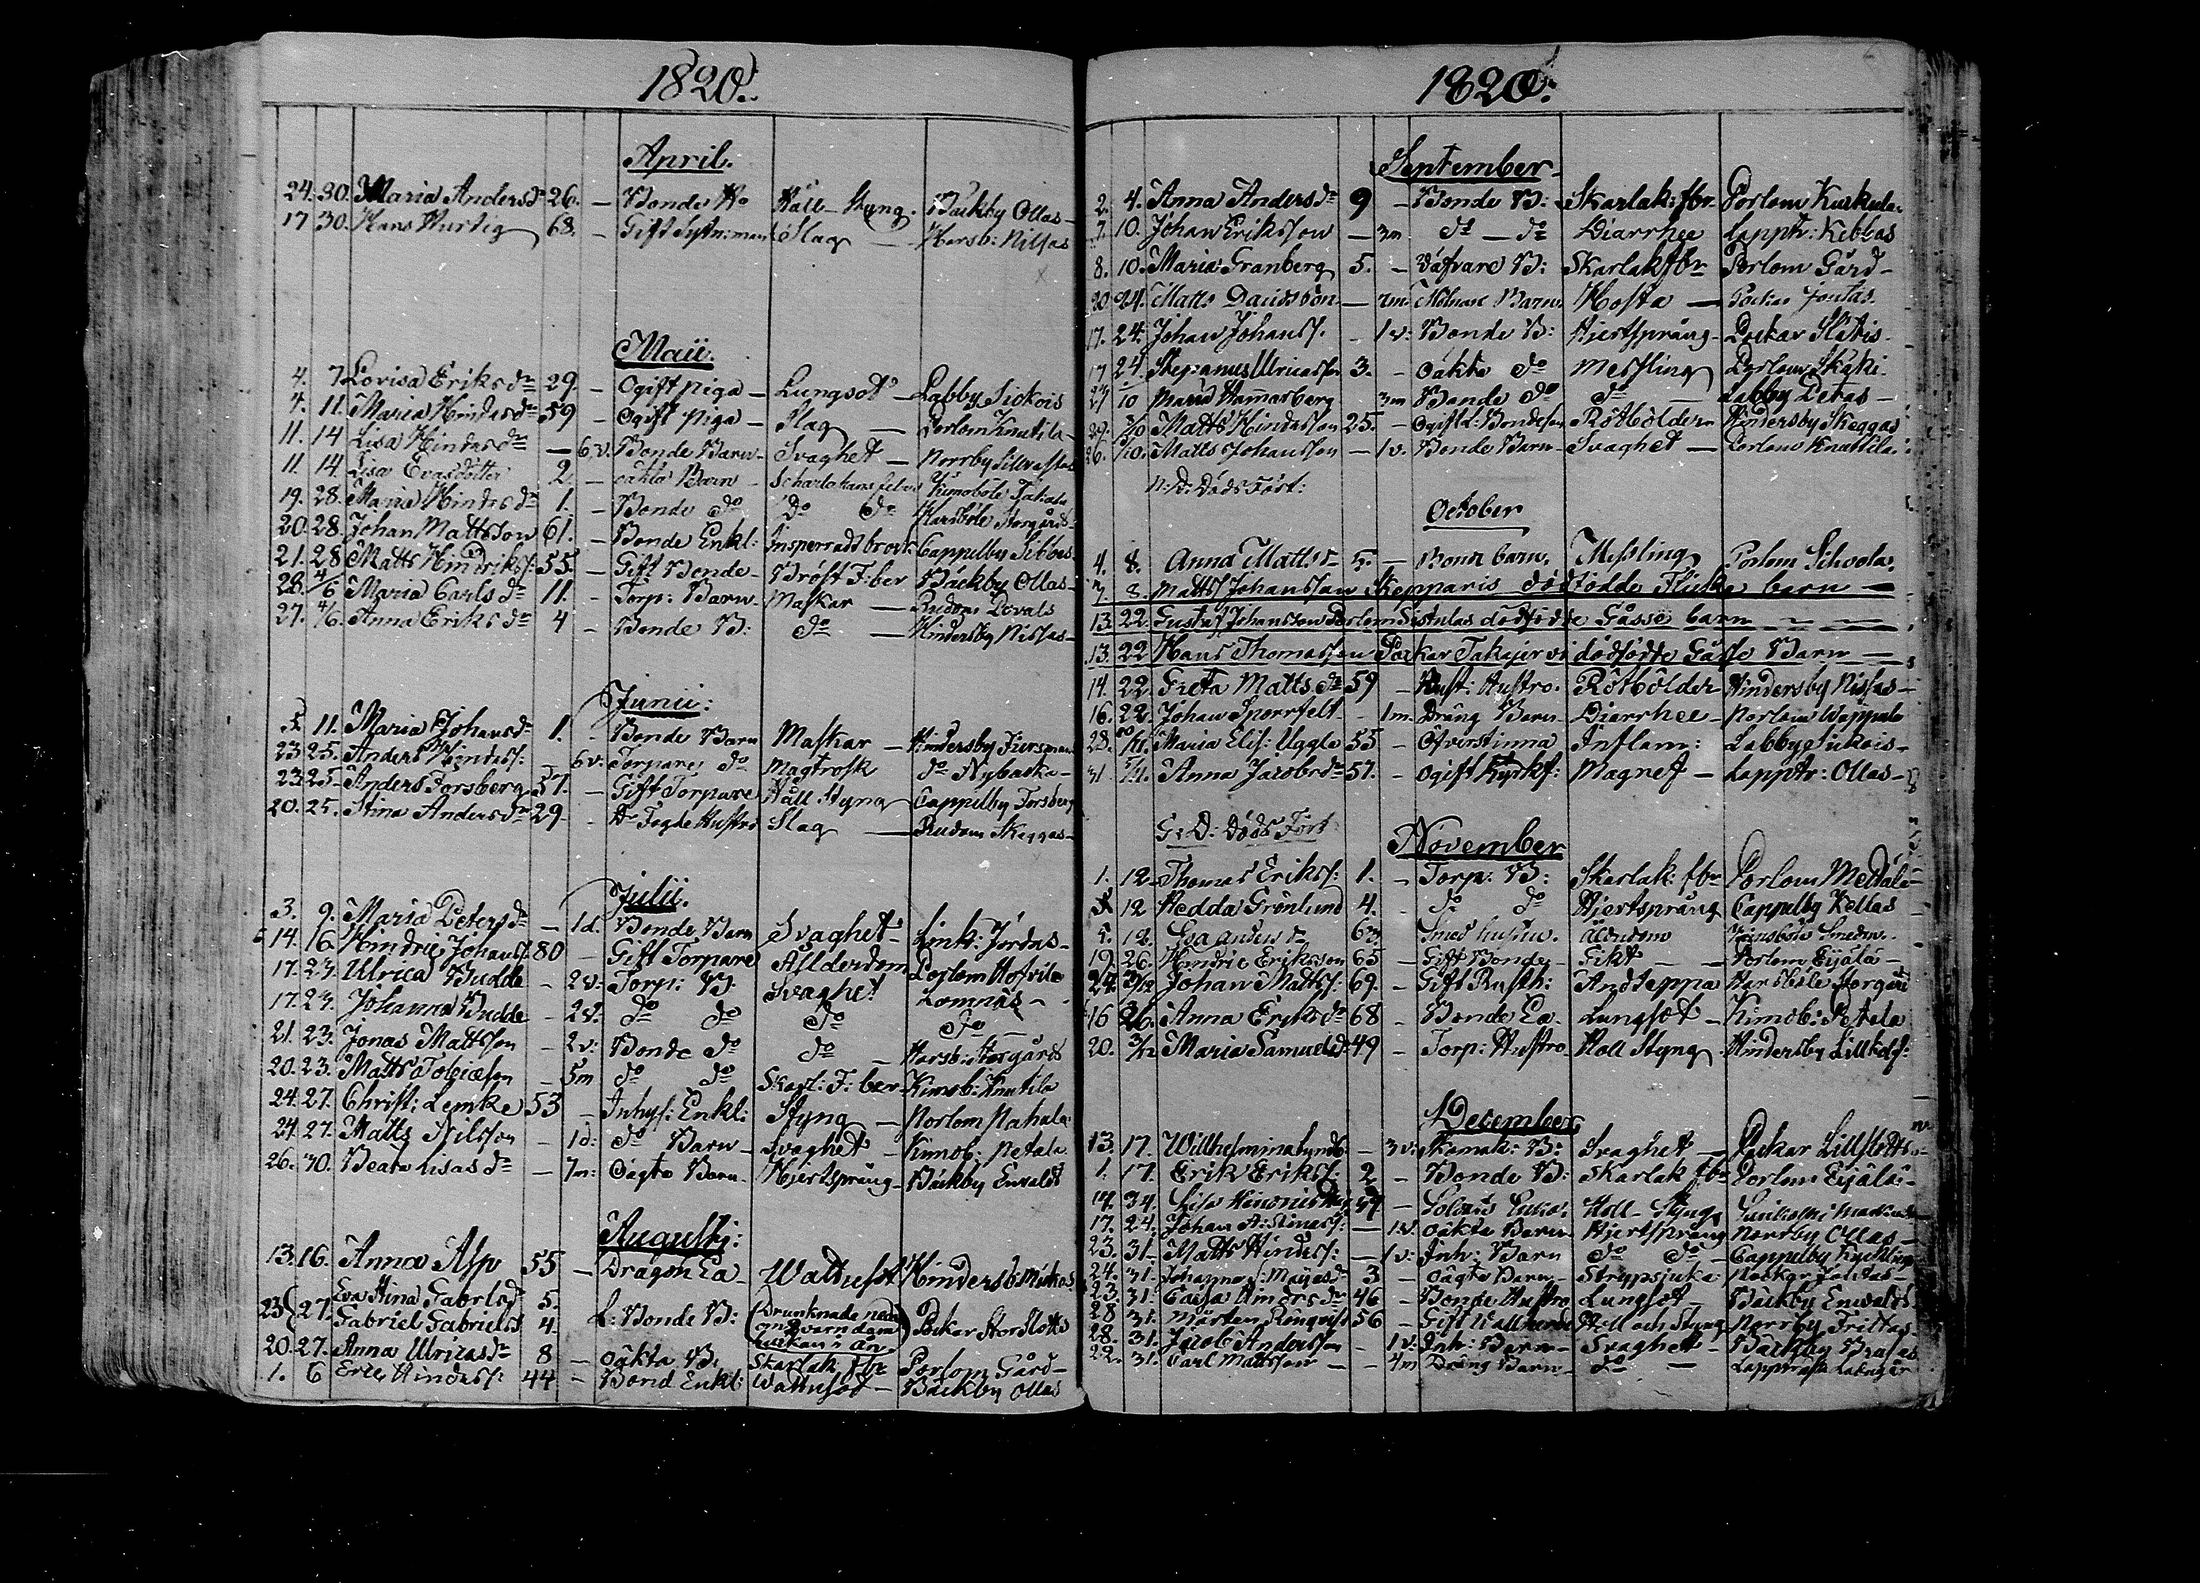 1820.
April.
24. 30. Maria Andersdr 26. – Bonde Ho Håll-Styng. Bäckby Ollas
17 30. Hans Hurtig 68. – Gift Sytn:man Slag — Harsb: Nissas
Maii.
4. 7 Lovisa Eriksdr 29. – Ogift piga – Lungsot – Labby Sickois
4. 11. Maria Hindersdr 59 – Ogift piga – Slag — Porlom Knutila
11. 14 Lisa Hindersdr — 6.v. Bonde Barn – Svaghet – Norrby Sillvastas
11. 14 Lisa Evasdotter 2 – oäkta Barn – Scharlakans feber Kimoböle
19. 28. Maria Hindersdr 1. – Bonde do Do do Harsböle Storgårds
20. 28. Johan Mattsson 61. – Bonde Enkl: Insperradt brock: Cappelby Sibbas
21. 28 Matts Hindrikss: 55. – Gift Bonde – Bröst F:ber Bäckby Ollas
28. 4/6 Maria Carlsdr 11. – Torp: Barn – Maskar — Rudom Lovals
27. 4/6. Anna Eriksdr 4 – Bonde B: do — Hindersby Nissas
Junii:
5. 11. Maria Johansdr 1. – Bonde Barn Maskar – Hindersby
23. 25. Anders Hinderss: – 6v. Torpare do Magtrosk do Nybacka
23. 25 Anders Forsberg 37. – Gift Torpare Håll Styng Cappelby Forsberg
20. 25. Stina Andersdr 29 – Hustro Slag — Rudom Skeggas
Julii.
3. 9. Maria Petersdr – 1d. Bonde Barn Svaghet – Link: Jordas
14. 16. Hindric Johanss: 80 – Gift Torpare Ållderdom Porlom Hofrila
17. 23. Ulrica Budde – 2v: Torp: B. Svaghet Lomnäs –
17. 23. Johanna Budde – 2v. do do do do –
21. 23. Jonas Mattsson – 2v: Bonde do do – Harsb: Storgårds
20. 23. Matts Tobiæson – 5m do do Skarl: F:ber – Kimob: Knutila
24. 27. Christ: Lemke 53 – Inhys: Enkl: Styng – Porlom Nahala
24. 27. Matts Nilsson – 1d: do Barn – Svaghet – Kimob: Petala
26. 30. Beata Lisasdr – 7m: Oägta Barn – Hjertsprång – Bäckby Envalds
Augusti:
13. 16. Anna Asp 55 – Dragon Ea – Wattusot Hindersb: Mickas
Eva Stina Gabrlsd 5.
23 27. Gabriel Gabrielss 4 L: Bonde B: (Drunknade Packar Storstotts
20. 27. Anna Ulricasdr 8 – oäkta B: Skarlak fbr Porlom Gård –
1. 6 Eric Hinderss: 44 – Bond Enkl: Wattusot – Bäckby Ollas
1820:
September
2. 4. Anna Andersdr 9 – Bonde B: Skarlak: fbr Porlom Kuskula
7. 10. Johan Eriksson – 3m do – do Diarrhee Lapptr: Kebbas
8. 10. Maria Granberg 5. – Väfvare B: Skarlak fbr Porlom Gård –
20 24. Matts Davidsson — 2m Barn. Hosta — Packar Joutas.
17. 24. Johan Johanss. – 1v: Bonde B: Hjertsprång – Packar Slätis
17 24. Stephanus Ulricasson 3. – oäkta do Messling Porlom Skäki
10 Maria Hamarberg 3m Bonde do do – Labby Petas –
29. Matts Hindersson 25. – Ogift L: Bondeson Rötbölder Hindersby Skeggas
26. Matts Johansson – 1v. Bonde Barn – Svaghet – Porlom Knuttila
N: D: Döds Fört:
October
4. 8. Anna Mattsd 5. – Bond barn. Messling Porlom
7. 8. Matts Johansson Skepparis dödfödde Flicke barn –
13. 22. Gustaf Johansson Porlom Sistulas dödfödde Gåsse barn
13. 22 Hans Thomasson Packar dödfödde Gåsse Barn –
14. 22. Greta Mattsdr 59 – Rust: Hustro. Rötbölder Hindersby Nissas –
16. 22. Johan Sporrfelt – 1m. Dräng Barn – Diarrhee – Porlom Wappala
28. Maria Elis: Uggla 55 – Öfverstinna Inflam: Labby Sickois –
31. 5/11. Anna Jacobsdr 57. – Ogift Magref – Lapptr: Ollas –
G: D: Döds Fört
November
1. 12. Thomas Erikss: 1. – Torp: B: Skarlak: fbr Porlom Mettälä
12 Hedda Grönlund 4. – do do Hjertsprång Cappelby Kellas
5. 12. Eva Andersdr 63 Smed hustru. Ålderdom
19. 26. Hindric Eriksson 65 – Gift Bonde – Gikt — Porlom Eijälä –
24. 3/12 Johan Mattss: 69. – Gift Rusth: Andteppa Harsböle Storgård
16 26. Anna Eriksdr 68 – Bonde Ea – Lungsot – Kimob: Petala
20. 3/12 Maria Samuelsd 49 – Torp: Hustro Holl Styng Hindersby Lillkols:
December
13. 17. Willhelmina – 3v: B: Svaghet – Packar Lillstotts
1. 17. Erik Erikss: 2 – Bonde B: Skarlak fbr Porlom Eijälä –
14. 24. Lisa 57 – Soldats Enka: Holl-Styng
17. 24. Johan A: Stinass: — 1v: oäkta Barn Hjertsprång Norrby Ollas –
23. 31. Matts Hinderss: – 1v: Inh: Barn do do – Cappelby Kycklings
24. 31. Johanna: Majasdr 3 – oägta Barn – Strypsjuka Packar Joutas –
23. 31. Caisa Hindersdr 46 – Bonde Hustro Lungsot – Bäckby Envalds
28 31. Mårten Ringqvist 56 – Gift Håll och Styng Norrby Frittas
28. 31. Jacob Andersson – 1v: Inh: Barn – Svaghet – Bäckby Brasas
22. 31. Carl Mattsson – – 4m Dräng Barn do – Lappträsk